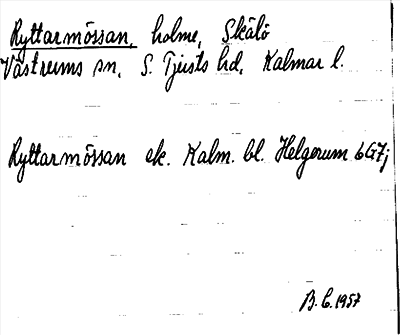 Ryttarmössan, holme, Skälö
Västrums sn, S. Tjusts hd, Kalmar l.
Ryttarmössan ek. Kalm. bl. Helgerum 6G7j
B. C. 1957